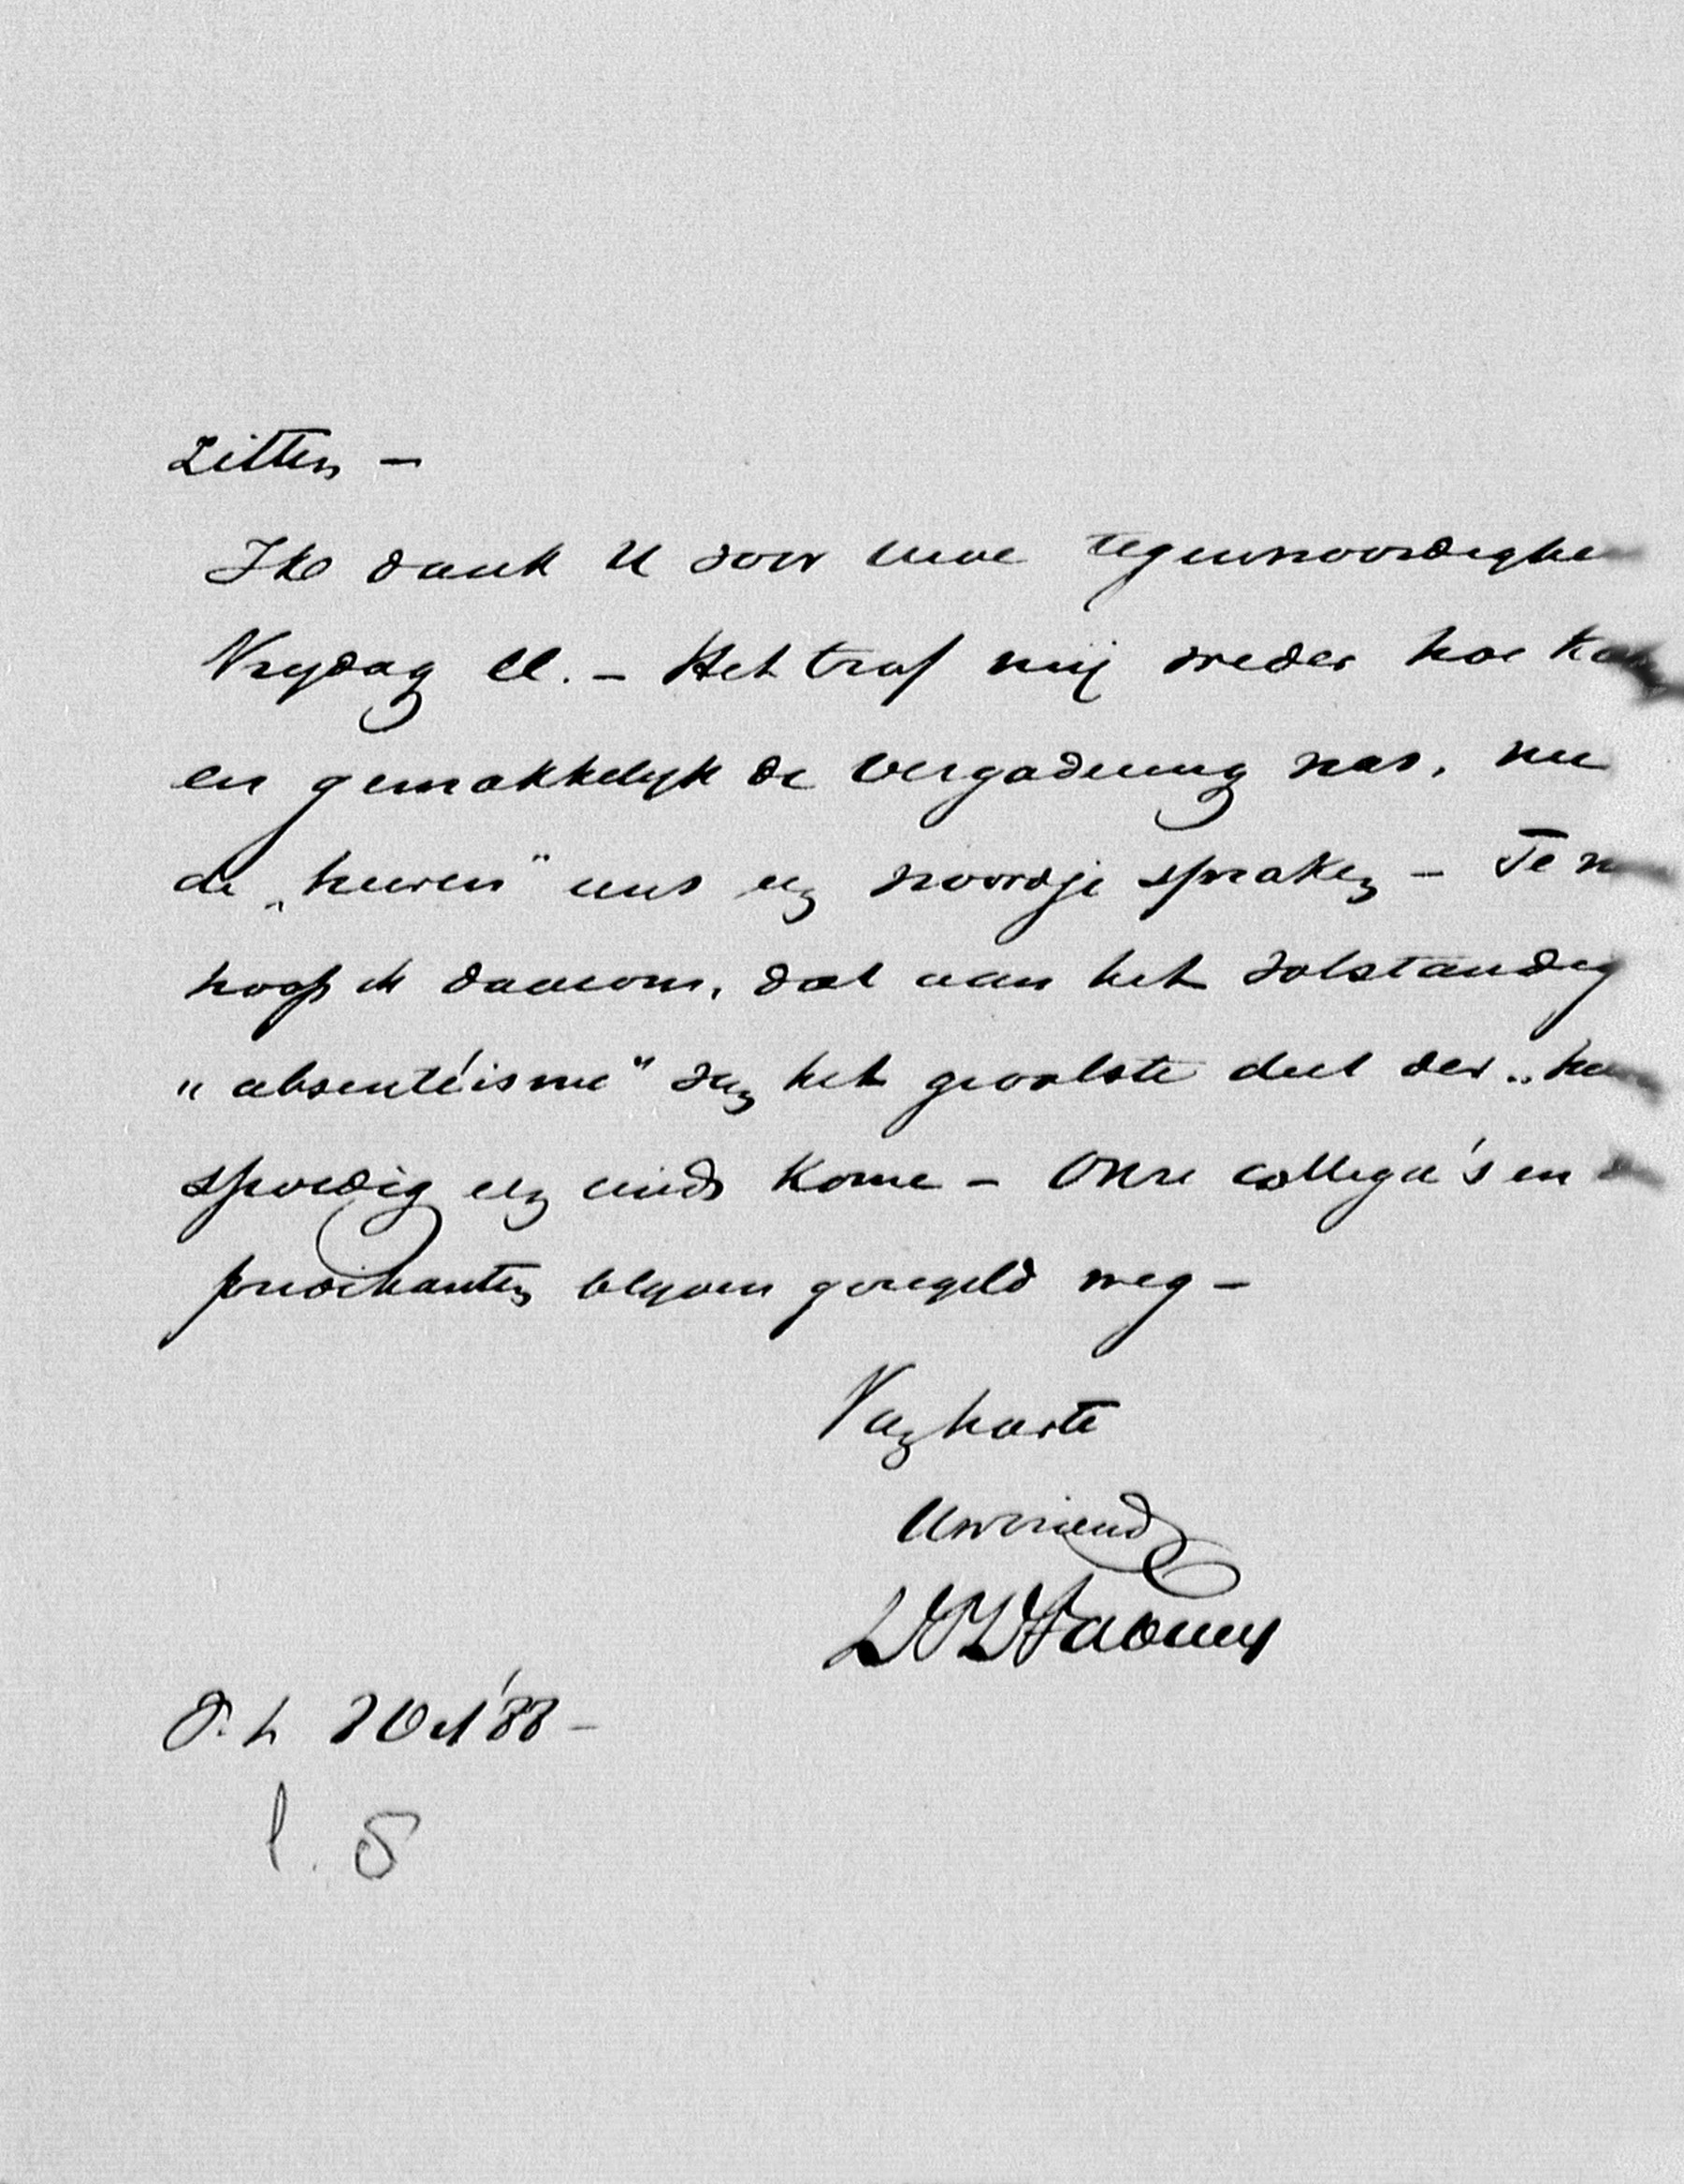 Zitten –
Ik dank U voor uwe tegenwoordighe
Vrydag ll. – Het trof mij weder hoe
en gemakkelyk de vergadering was, nu
de „heeren" eens een woordje spraken – Te
hoop ik daarom, dat aan het volstandig
„absentéisme" van het grootste deel der „
spoedig een einde kome – Onze collega's en
predikanten blyven geregeld weg –
Van harte
Uw vriend
Oct '88 –